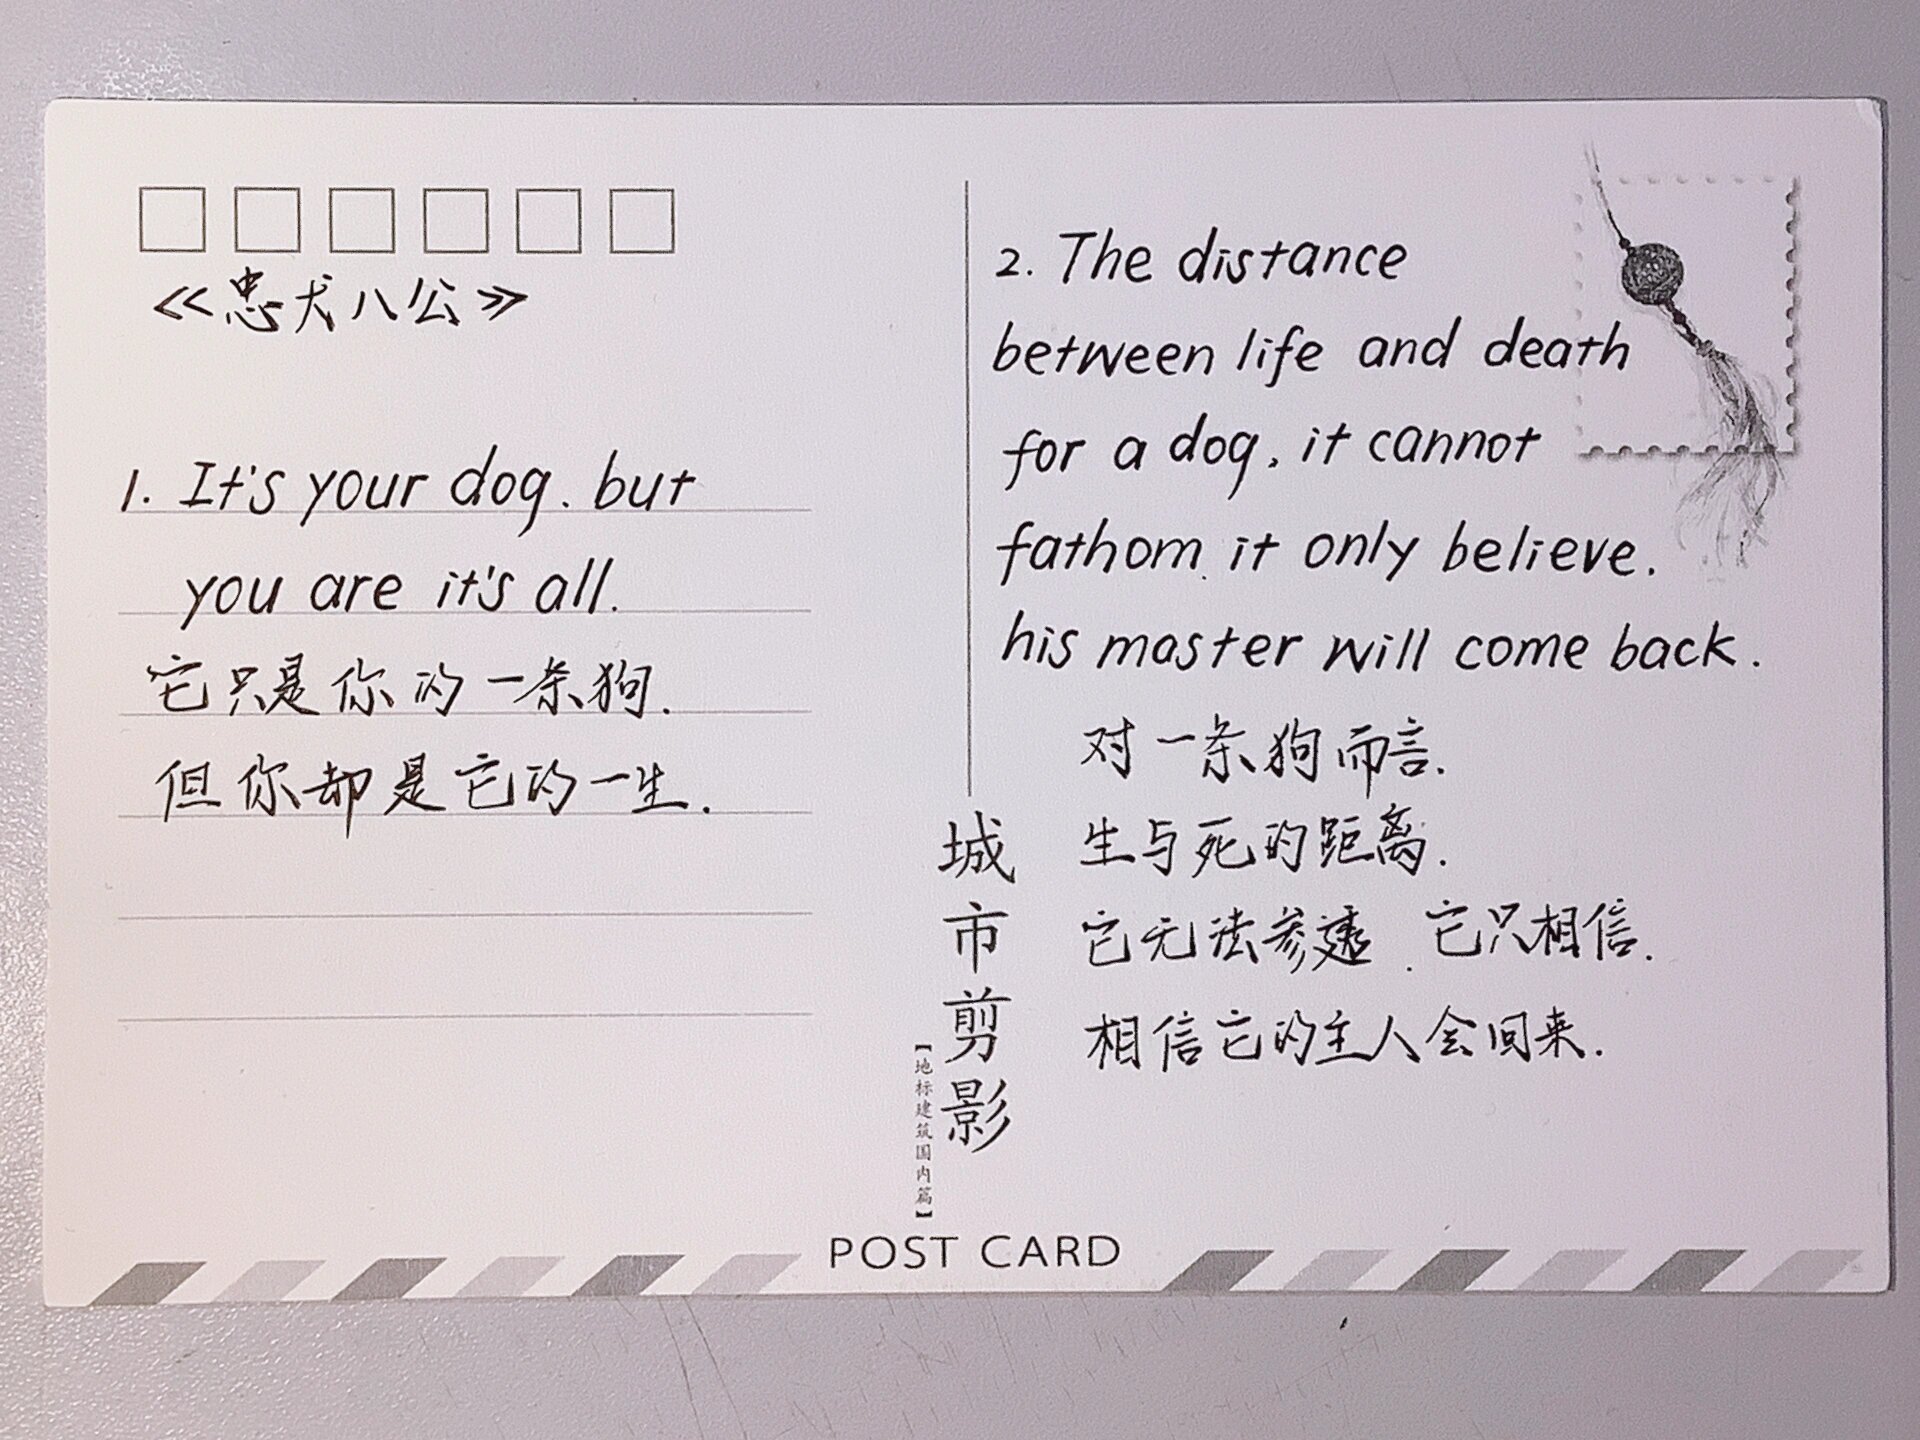 《忠犬八公》
1. It's your dog. but
you are it's all.
它只是你的一条狗.
但你却是它的一生.
2. The distance
between life and death
for a dog, it cannot
fathom. it only believe.
his master will come back.
对一条狗而言.
生与死的距离.
它无法参透. 它只相信.
相信它的主人会回来.
城市剪影
【地标建筑国内篇】
POST CARD